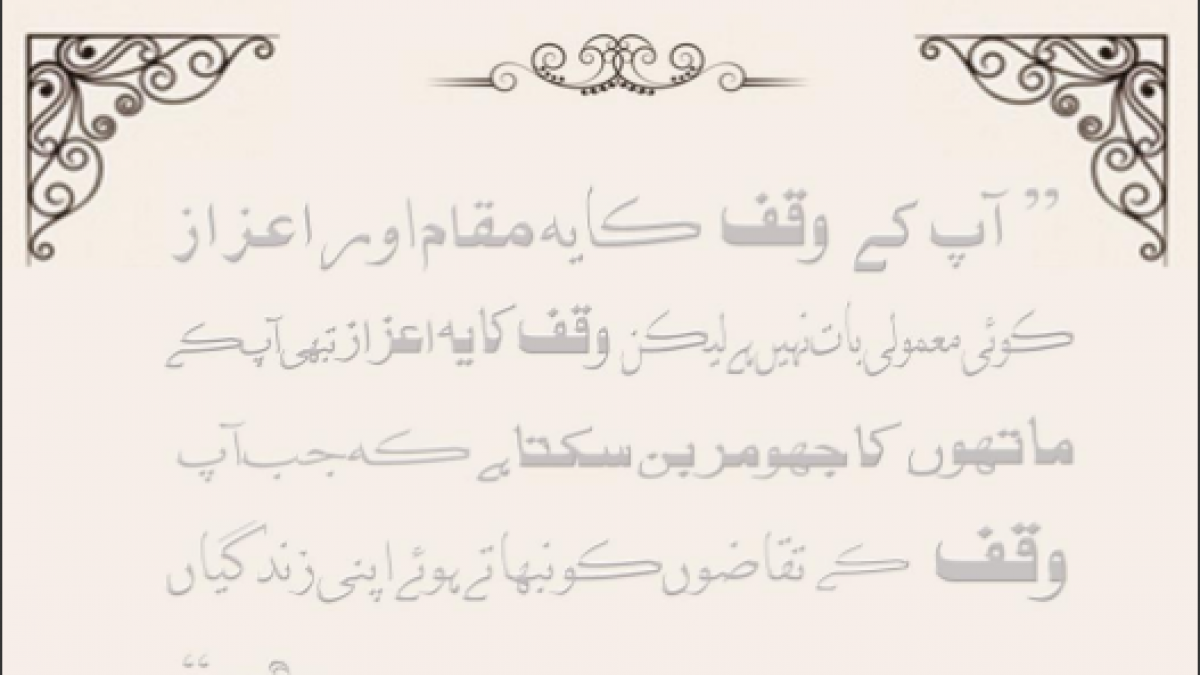 ” آپ کے وقف کا یہ مقام اور اعزاز
کوئی معمولی بات نہیں ہے لیکن وقف کا یہ اعزاز تبھی آپ کے
ماتھوں کا جھومر بن سکتا ہے کہ جب آپ
وقف کے تقاضوں کو نبھاتے ہوئے اپنی زندگیاں
“